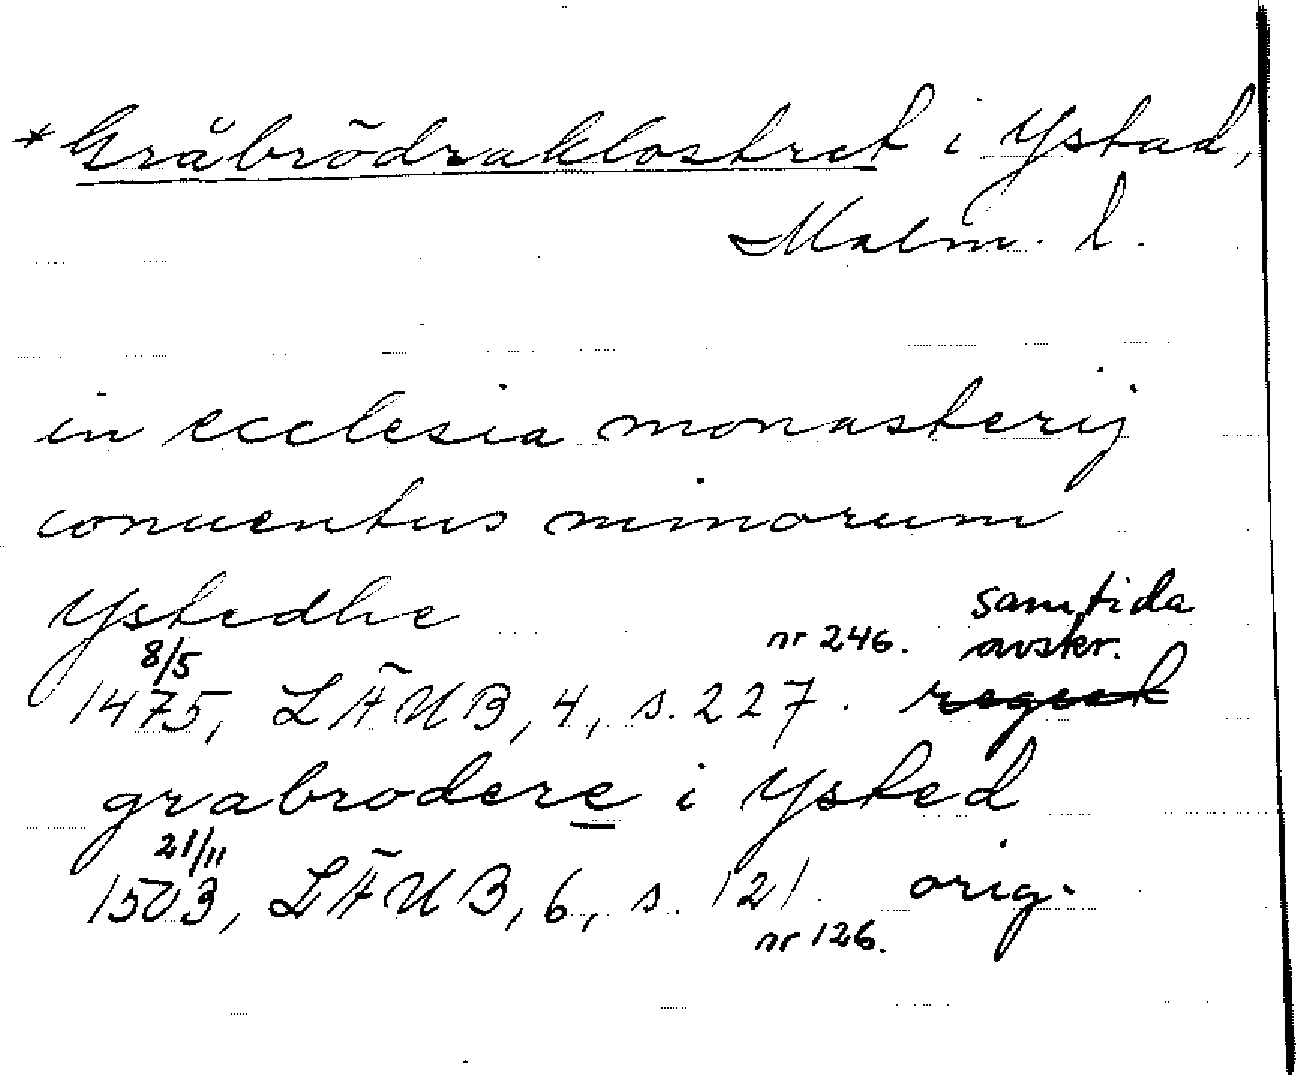 *Gråbrödraklostret i Ystad,
Malm. l.
in ecclesia monasterij
conuentus minorum
Ystedhe
samtida
8/5 nr 246. avskr.
1475, LÄUB, 4, s. 227. regest
grabrodere i Ysted
21/11
1503, LÄUB, 6, s. 121. orig.
nr 126.